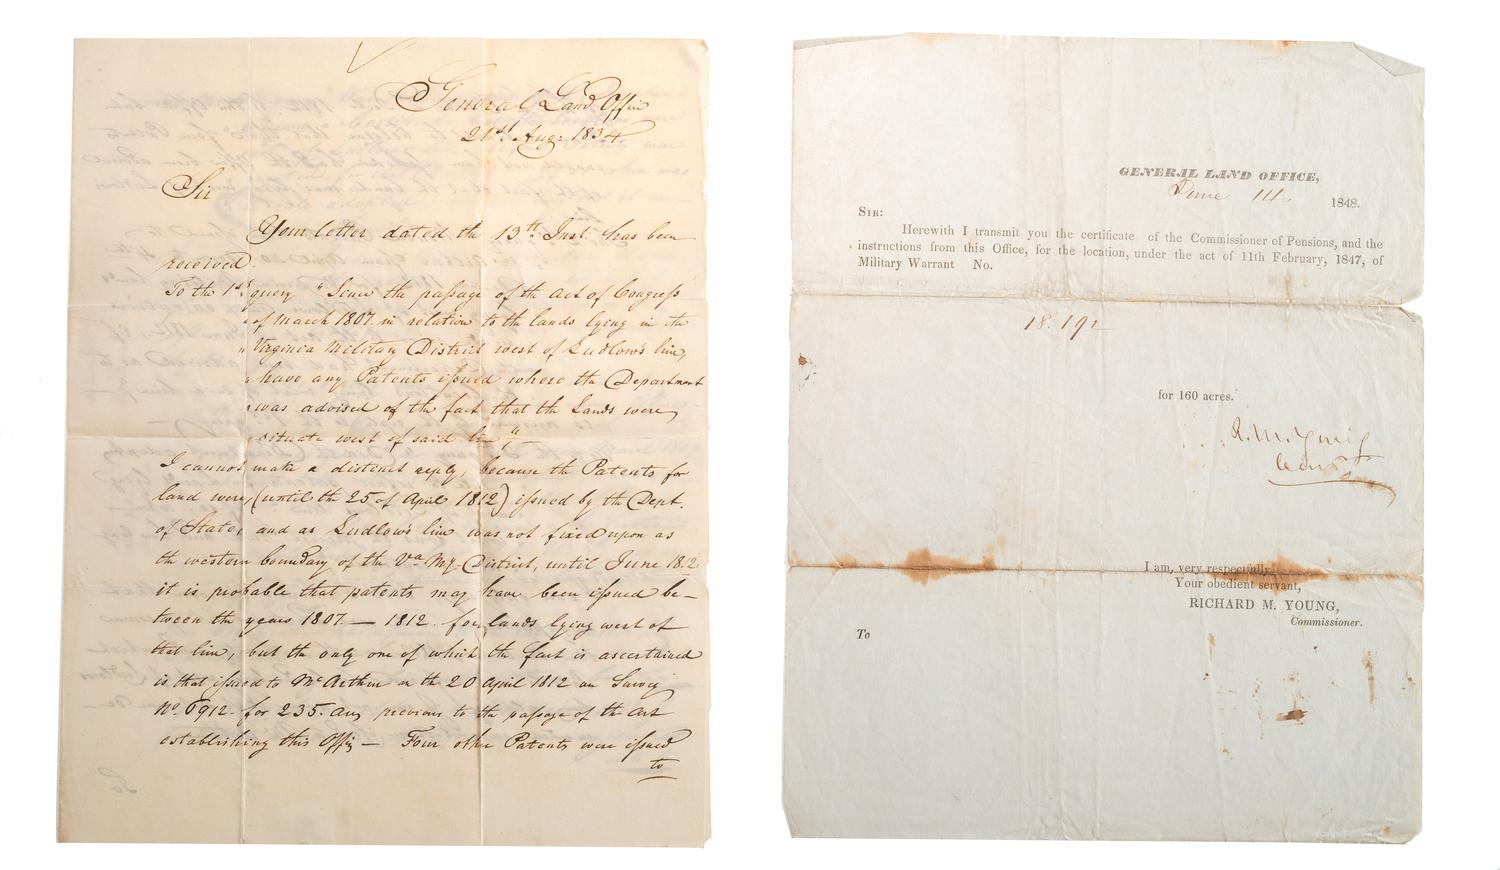 General Land Office
21st Aug: 1834.
Sir
Your letter dated the 13th Inst. has been
received.
To the 1st query "Since the passage of the act of Congress
" of March 1807 in relation to the lands lying in the
" Virginia Military District west of Ludlow's line,
" have any Patents issued where the Department
" was advised of the fact that the Lands were
" situate west of said line" —
I cannot make a distinct reply, because the Patents for
land were, (until the 25 of April 1812) issued by the Dept.
of State, and as Ludlow's line was not fixed upon as
the western boundary of the Va. My. District, until June 1812
it is probable that patents may have been issued be-
tween the years 1807 — 1812. for lands lying west of
that line, but the only one of which the fact is ascertained
is that issued to McArthur on the 20 April 1812 on Survey
No. 6912. for 235. previous to the passage of the act
establishing this Office — Four other Patents were issued
to
GENERAL LAND OFFICE,
June 14. 1848.
SIR:
Herewith I transmit you the certificate of the Commissioner of Pensions, and the
instructions from this Office, for the location, under the act of 11th February, 1847, of
Military Warrant No.
18.192
for 160 acres.
R. M. Young
I am, very respectfully,
Your obedient servant,
RICHARD M. YOUNG,
Commissioner.
To